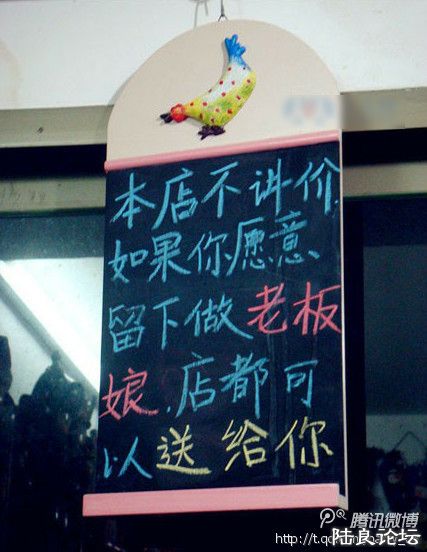 本店不讲价
如果你愿意、
留下做老板
娘.店都可
以送给你
腾讯微博
陆良论坛